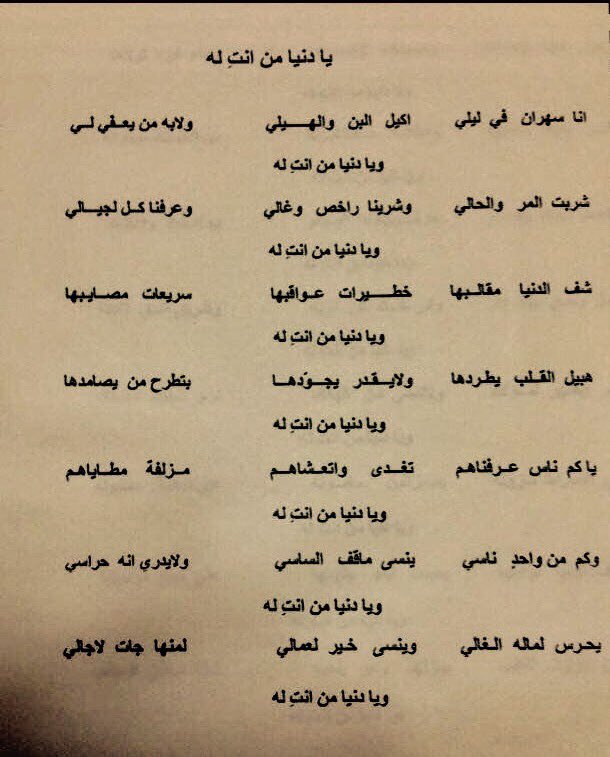 يا دنيا من انتِ له
انا سهران في ليلي اكيل البن والهـــيلي ولابه من يعـفي لـي
ويا دنيا من انتِ له
شربت المر والحالي وشرينا راخص وغالي وعرفنا كـل لجيـالي
ويا دنيا من انتِ له
شف الدنيا مقالـبها خطــــيرات عـواقبها سريعات مصـايبها
ويا دنيا من انتِ له
هبيل القـلب يطـردها ولايـقـدر يجـوّدهـا بتطرح من يصامدها
ويا دنيا من انتِ له
يا كم ناس عـرفناهـم تغـدى واتعـشاهـم مـزلفة مطـاياهم
ويا دنيا من انتِ له
وكم من واحدٍ ناسي ينسى ماقف الساسي ولايدري انه حراسي
ويا دنيا من انتِ له
يحـرس لماله الـغالي وينسى خـير لعمالي لمنها جات لاجالي
ويا دنيا من انتِ له